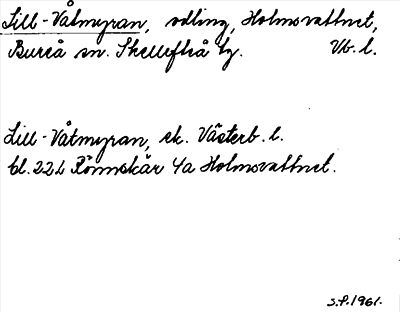 Lill-Våtmyran, odling, Holmsvattnet,
Bureå sn. Skellefteå tg. Vb. l.
Lill-Våtmyran, ek. Västerb. l.
bl. 22L Rönnskär 4a Holmsvattnet.
S.P. 1961.